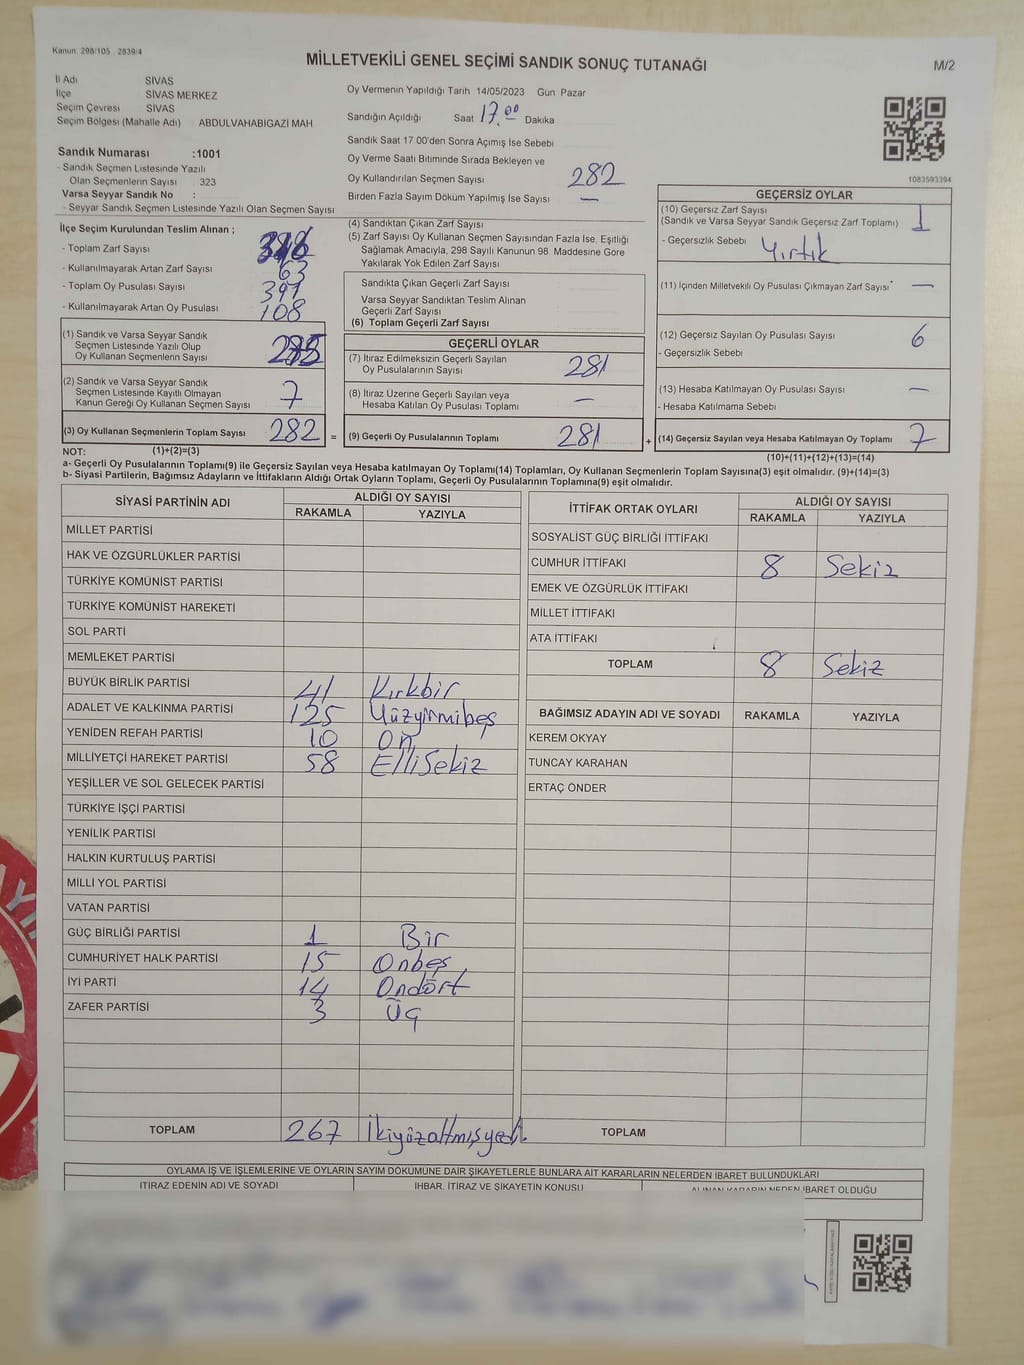 Kanun: 298/105 2839/4
MİLLETVEKİLİ GENEL SEÇİMİ SANDIK SONUÇ TUTANAĞI
M/2
İl Adı SİVAS
İlçe SİVAS MERKEZ
Seçim Çevresi SİVAS
Seçim Bölgesi (Mahalle Adı) ABDULVAHABIGAZI MAH
Sandık Numarası :1001
- Sandık Seçmen Listesinde Yazılı
Olan Seçmenlerin Sayısı 323
Varsa Seyyar Sandık No :
- Seyyar Sandık Seçmen Listesinde Yazılı Olan Seçmen Sayısı
Oy Vermenin Yapıldığı Tarih 14/05/2023 Gün Pazar
Sandığın Açıldığı Saat 17.00 Dakika
Sandık Saat 17 00'den Sonra Açımış İse Sebebi
Oy Verme Saati Bitiminde Sırada Bekleyen ve
Oy Kullandırılan Seçmen Sayısı 282
Birden Fazla Sayım Döküm Yapılmış İse Sayısı —
1083593394
İlçe Seçim Kurulundan Teslim Alınan ;
- Toplam Zarf Sayısı
- Kullanılmayarak Artan Zarf Sayısı 63
- Toplam Oy Pusulası Sayısı 391
- Kullanılmayarak Artan Oy Pusulası 108
(1) Sandık ve Varsa Seyyar Sandık
Seçmen Listesinde Yazılı Olup
Oy Kullanan Seçmenlerin Sayısı
(2) Sandık ve Varsa Seyyar Sandık
Seçmen Listesinde Kayıtlı Olmayan
Kanun Gereği Oy Kullanan Seçmen Sayısı 7
(3) Oy Kullanan Seçmenlerin Toplam Sayısı 282 =
(4) Sandıktan Çıkan Zarf Sayısı
(5) Zarf Sayısı Oy Kullanan Seçmen Sayısından Fazla İse, Eşitliği
Sağlamak Amacıyla, 298 Sayılı Kanunun 98 Maddesine Göre
Yakılarak Yok Edilen Zarf Sayısı
Sandıkta Çıkan Geçerli Zarf Sayısı
Varsa Seyyar Sandıktan Teslim Alınan
Geçerli Zarf Sayısı
(6) Toplam Geçerli Zarf Sayısı
GEÇERLİ OYLAR
(7) İtiraz Edilmeksizin Geçerli Sayılan
Oy Pusulalarının Sayısı 281
(8) İtiraz Üzerine Geçerli Sayılan veya
Hesaba Katılan Oy Pusulası Toplamı —
(9) Geçerli Oy Pusulalarının Toplamı 281 +
GEÇERSİZ OYLAR
(10) Geçersiz Zarf Sayısı 1
(Sandık ve Varsa Seyyar Sandık Geçersiz Zarf Toplamı)
- Geçersizlik Sebebi Yırtık
(11) İçinden Milletvekili Oy Pusulası Çıkmayan Zarf Sayısı —
(12) Geçersiz Sayılan Oy Pusulası Sayısı 6
- Geçersizlik Sebebi
(13) Hesaba Katılmayan Oy Pusulası Sayısı —
- Hesaba Katılmama Sebebi
(14) Geçersiz Sayılan veya Hesaba Katılmayan Oy Toplamı 7
NOT: (1)+(2)=(3)
(10)+(11)+(12)+(13)=(14)
a- Geçerli Oy Pusulalarının Toplamı(9) ile Geçersiz Sayılan veya Hesaba katılmayan Oy Toplamı(14) Toplamları, Oy Kullanan Seçmenlerin Toplam Sayısına(3) eşit olmalıdır. (9)+(14)=(3)
b- Siyasi Partilerin, Bağımsız Adayların ve İttifakların Aldığı Ortak Oyların Toplamı, Geçerli Oy Pusulalarının Toplamına(9) eşit olmalıdır.
SİYASİ PARTİNİN ADI ALDIĞI OY SAYISI
RAKAMLA YAZIYLA
MİLLET PARTİSİ
HAK VE ÖZGÜRLÜKLER PARTİSİ
TÜRKİYE KOMÜNİST PARTİSİ
TÜRKİYE KOMÜNİST HAREKETİ
SOL PARTİ
MEMLEKET PARTİSİ
BÜYÜK BİRLİK PARTİSİ 41 Kırkbir
ADALET VE KALKINMA PARTİSİ 125 Yüzyirmibeş
YENİDEN REFAH PARTİSİ 10 On
MİLLİYETÇİ HAREKET PARTİSİ 58 Ellisekiz
YEŞİLLER VE SOL GELECEK PARTİSİ
TÜRKİYE İŞÇİ PARTİSİ
YENİLİK PARTİSİ
HALKIN KURTULUŞ PARTİSİ
MİLLİ YOL PARTİSİ
VATAN PARTİSİ
GÜÇ BİRLİĞİ PARTİSİ 1 Bir
CUMHURİYET HALK PARTİSİ 15 Onbeş
İYİ PARTİ 14 Ondört
ZAFER PARTİSİ 3 Üç
TOPLAM 267 İkiyüzaltmışyedi
İTTİFAK ORTAK OYLARI ALDIĞI OY SAYISI
RAKAMLA YAZIYLA
SOSYALİST GÜÇ BİRLİĞİ İTTİFAKI
CUMHUR İTTİFAKI 8 Sekiz
EMEK VE ÖZGÜRLÜK İTTİFAKI
MİLLET İTTİFAKI
ATA İTTİFAKI
TOPLAM 8 Sekiz
BAĞIMSIZ ADAYIN ADI VE SOYADI RAKAMLA YAZIYLA
KEREM OKYAY
TUNCAY KARAHAN
ERTAÇ ÖNDER
TOPLAM
OYLAMA İŞ VE İŞLEMLERİNE VE OYLARIN SAYIM DÖKÜMÜNE DAİR ŞİKAYETLERLE BUNLARA AİT KARARLARIN NELERDEN İBARET BULUNDUKLARI
İTİRAZ EDENİN ADI VE SOYADI İHBAR, İTİRAZ VE ŞİKAYETİN KONUSU ALINAN KARARIN NEDEN İBARET OLDUĞU